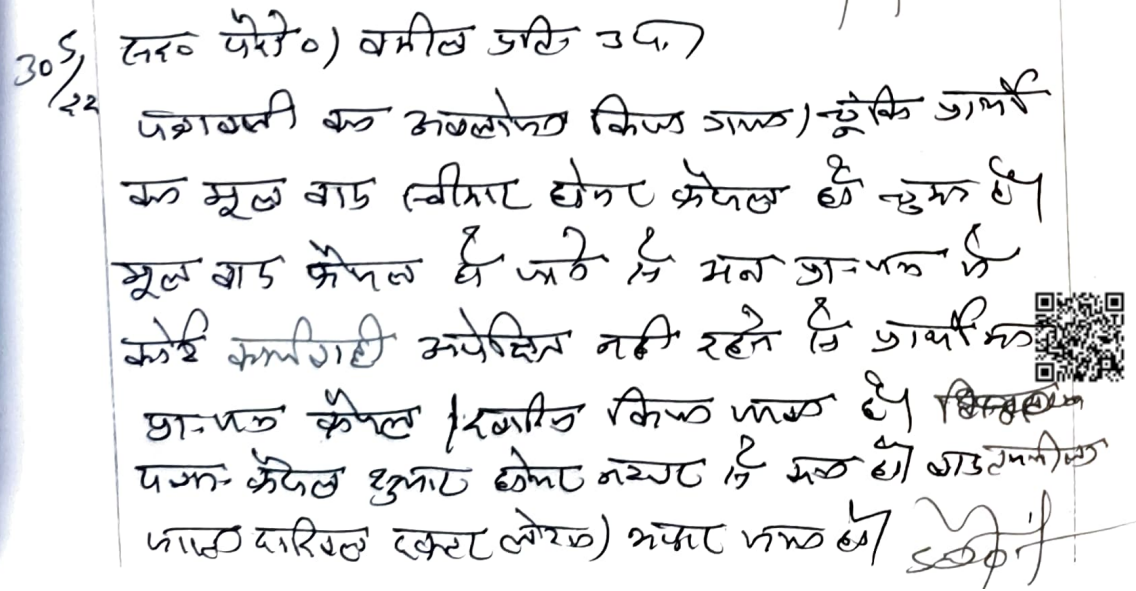 30/5/22
पत्रावली का अवलोकन किया गया। चूंकि प्रार्थी
का मूल वाद स्वीकार होकर फैसल हो चुका है।
मूल वाद फैसल हो जाने से अब प्रा-पत्र में
कोई कार्यवाही अपेक्षित नहीं रहने से प्रार्थी का
प्रा-पत्र फैसल / खारिज किया जाता है।
पत्रा- फैसल शुमार होकर नम्बर से कम हो। बाद तकमील
दाखिल दफ्तर हो।